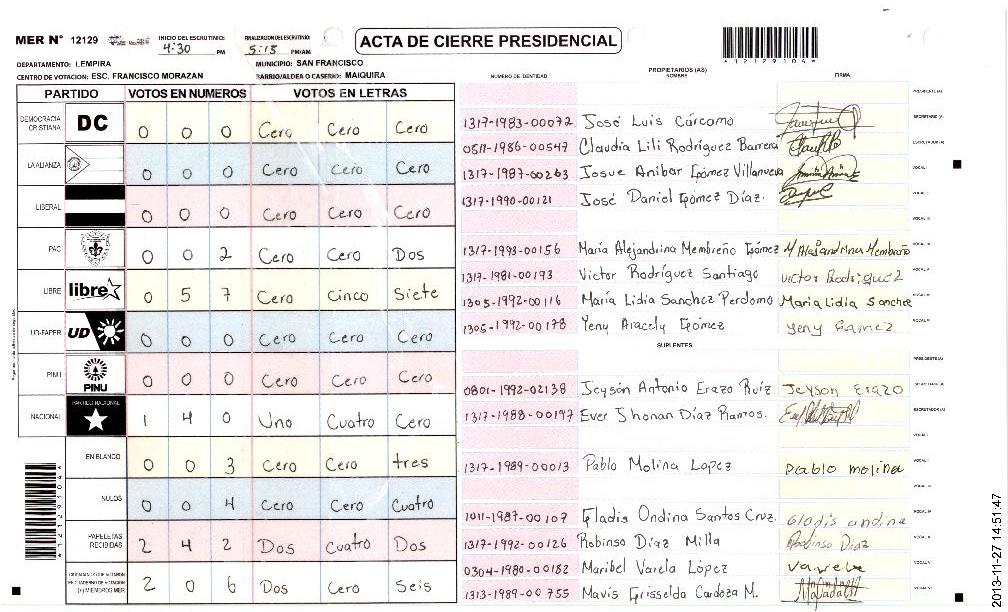 MER N° 12129
INICIO DEL ESCRUTINIO: 4:30 PM
FINALIZACION DEL ESCRUTINIO: 5:15 PM/AM
ACTA DE CIERRE PRESIDENCIAL
*12129104*
DEPARTAMENTO: LEMPIRA
MUNICIPIO: SAN FRANCISCO
CENTRO DE VOTACION: ESC. FRANCISCO MORAZAN
BARRIO/ALDEA O CASERIO: MAIQUIRA
PARTIDO VOTOS EN NUMEROS VOTOS EN LETRAS
DEMOCRACIA CRISTIANA DC 0 0 0 Cero Cero Cero
LA ALIANZA 0 0 0 Cero Cero Cero
LIBERAL 0 0 0 Cero Cero Cero
PAC 0 0 2 Cero Cero Dos
LIBRE libre 0 5 7 Cero Cinco Siete
UD-FAPER UD 0 0 0 Cero Cero Cero
PINU PINU 0 0 0 Cero Cero Cero
NACIONAL PARTIDO NACIONAL 1 4 0 Uno Cuatro Cero
EN BLANCO 0 0 3 Cero Cero tres
NULOS 0 0 4 Cero Cero Cuatro
PAPELETAS RECIBIDAS 2 4 2 Dos Cuatro Dos
CIUDADANOS QUE VOTARON EN CUADERNO DE VOTACION (+) MIEMBROS MER 2 0 6 Dos Cero Seis
*12129104*
NUMERO DE IDENTIDAD
PROPIETARIOS (AS)
NOMBRE
FIRMA
PRESIDENTE(A)
1317-1983-00072 José Luis Cárcamo SECRETARIO (A)
0511-1986-00547 Claudia Lili Rodríguez Barrera ESCRUTADOR(A)
1317-1987-00263 Josue Anibar Gómez Villanueva VOCAL I
1317-1990-00121 José Daniel Gómez Díaz. VOCAL II
VOCAL III
1317-1993-00156 María Alejandrina Membreño Gómez M Alejandrina Membreño VOCAL IV
1317-1981-00193 Victor Rodríguez Santiago Victor Rodriguez VOCAL V
1305-1992-00116 María Lidia Sanchez Perdomo Maria Lidia Sanchez VOCAL VI
1305-1992-00178 Yeny Aracely Gómez yeny Gamez VOCAL VII
SUPLENTES
PRESIDENTE(A)
0801-1992-02138 Jeyson Antonio Erazo Ruíz Jeyson Erazo SECRETARIO (A)
1317-1988-00197 Ever Jhonan Díaz Ramos. ESCRUTADOR(A)
VOCAL I
1317-1989-00013 Pablo Molina Lopez pablo molina VOCAL II
VOCAL III
1011-1987-00107 Gladis Ondina Santos Cruz. Gladis andina VOCAL IV
1317-1992-00126 Robinso Díaz Milla Robinso Diaz VOCAL V
0304-1980-00182 Maribel Varela López varela VOCAL VI
1313-1989-00755 Mavis Grisselda Cardoza M. VOCAL VII
2013-11-27 14:51:47